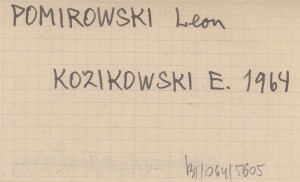 POMIROWSKI Leon
KOZIKOWSKI E. 1964
BI/064/5605